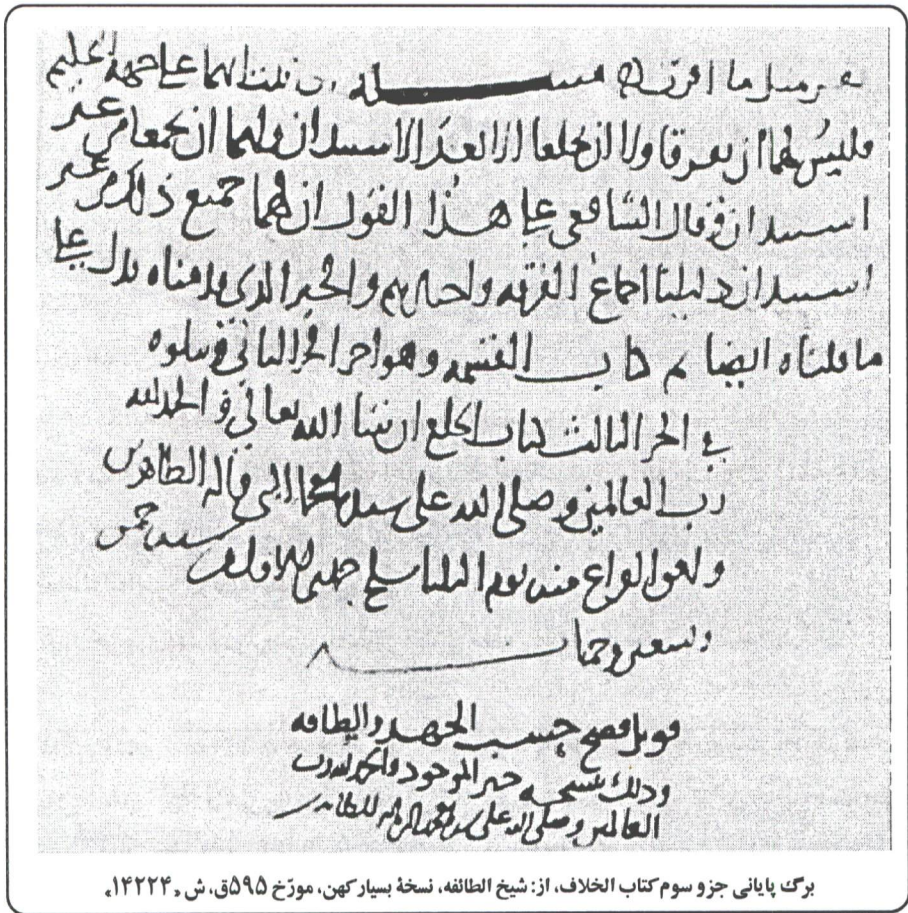 مثل ما مسئلة اذا ثبت انهما على جهة التحكيم
فليس لهما ان يفرقا ولا ان يخلعا الا بعد الاستيذان ولهما ان يجمعا من غير
استيذان وقال الشافعي على هذا القول ان لهما جميع ذلك من غير
استيذان دليلنا اجماع الفرقة واخبارهم والخبر الذي قدمناه يدل على
ما قلناه ايضا تم كتاب القسمة وهو اخر الجزء الثاني ويتلوه
في الجزء الثالث كتاب الخلع ان شا الله تعالى والحمد لله
رب العالمين وصلى الله على سيدنا محمد النبي واله الطاهرين
ووقع الفراغ منه يوم الثلثا سلخ الاولى سنه خمس
وتسعين وخمسمائة
قوبل فصح حسب الجهد والطاقه
وذلك بنسخه الموجود والحمد لله رب
العالمين وصلى الله على سيدنا محمد واله الطاهرين
برگ پایانی جزو سوم کتاب الخلاف، از: شیخ الطائفه، نسخهٔ بسیار کهن، مورّخ ۵۹۵ق، ش «۱۴۲۲۴»